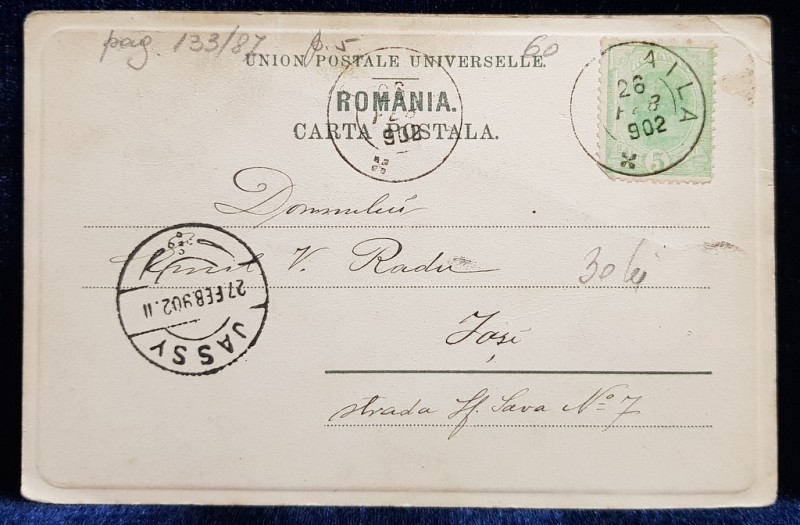 pag. 133/87 p.5 60
UNION POSTALE UNIVERSELLE.
ROMÂNIA.
CARTA POSTALA.
26
FEB
902
AILA
26
FEB
902
5
Domnului
Emil V. Radu
30 lei
Iași
strada Sf. Sava No 7
JASSY
27 FEB 902. 11